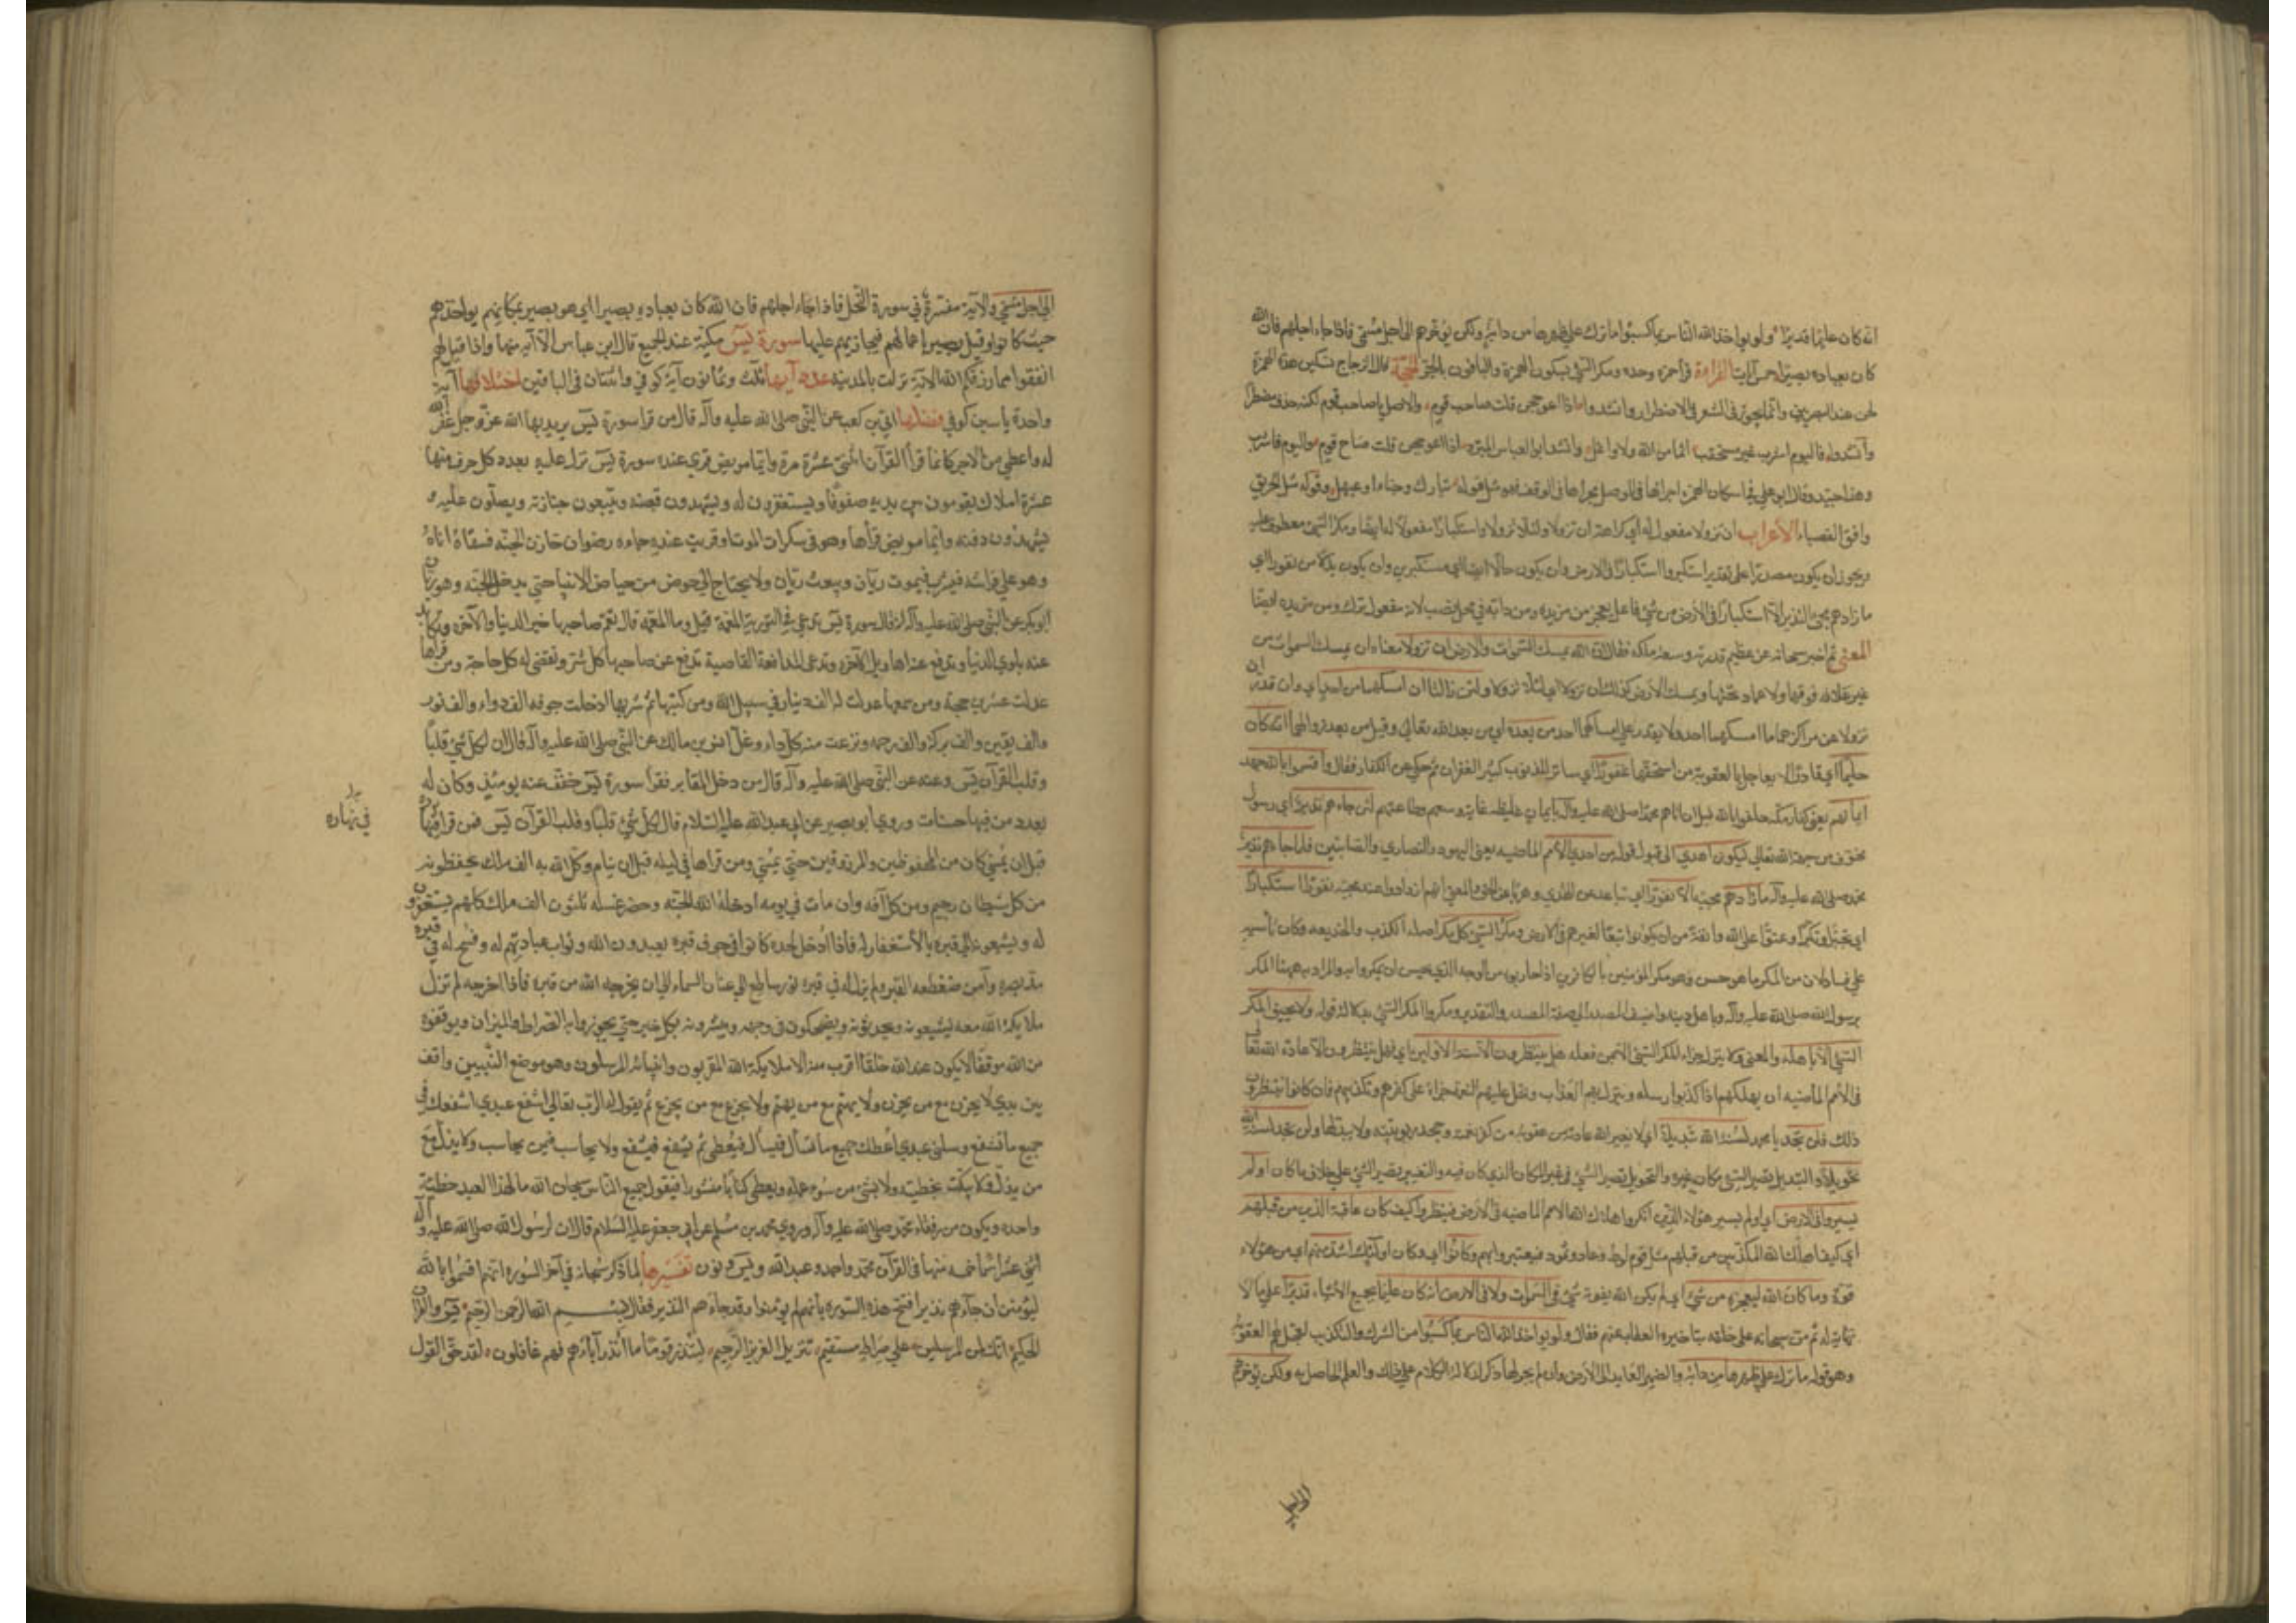 انه كان عليما قديرا ولو يواخذ الله الناس بما كسبوا ما ترك علي ظهرها من دابة ولكن يؤخرهم الي اجل مسمي فاذا جاء اجلهم فان الله
كان بعباده بصيرا خمس آيات القراءة قرأ حمزة وحده ومكر السيئ بسكون الهمزة والباقون بالجر الحجة قال الزجاج تسكين هذه الهمزة
لحن عند البصريين وانما يجوز في الشعر في الاضطرار وانشدوا اذا اعوججن قلت صاحب قوم والاصل يا صاحب قوم لكنه حذف مضطرا
وأنشدوا فاليوم اشرب غير مستحقب اثما من الله ولا واغل وانشد ابو العباس المبرد اذا اعوججن قلت صاح قوم واليوم فاشرب
وهذا جيد وقال ابو علي في اسكان الهمزة اجراها في الوصل مجراها في الوقف فهو مثل قوله وعيهل وقوله مثل الحريق
وافق القصباء الاعراب أن تزولا مفعول له أي كراهة ان تزولا ولئلا تزولا واستكبارا مفعول له ايضا ومكر السيئ معطوف عليه
ويجوز ان يكون مصدرا علي تقدير استكبروا استكبارا في الارض وان يكون حالا اي مستكبرين وان يكون بدلا من نفورا اي
ما زادهم مجئ النذير الا استكبارا في الأرض من شئ فاعل يعجز من مزيدة ومن دابة في محل نصب لانه مفعول ترك ومن مزيدة ايضا
المعني ثم اخبر سبحانه عن عظيم قدرته وسعة ملكه فقال ان الله يمسك السموات والارض ان تزولا معناه ان يمسك السموات من
غير علاقة فوقها ولا عماد تحتها ويمسك الأرض كذلك ان تزولا اي لئلا تزولا ولئن زالتا ان امسكهما من احد اي وان قدر ان
تزولا عن مراكزهما ما امسكهما احد ولا يقدر علي امساكهما احد من بعده اي من بعد الله تعالي وقيل من بعد زوالهما انه كان
حليما أي قادرا لا يعاجل بالعقوبة من استحقها غفورا اي ساتر للذنوب كثير الغفران ثم حكي عن الكفار فقال وأقسموا بالله جهد
ايمانهم يعني كفار مكة حلفوا بالله قبل ان ياتيهم محمد صلي الله عليه وآله بايمان غليظة غاية وسعهم وطاقتهم لئن جاءهم نذير أي رسول
مخوف من جهة الله تعالي ليكونن اهدي الي قبول قوله من احدي الأمم الماضيه يعني اليهود والنصاري والصابئين فلما جاءهم نذير
محمد صلي الله عليه وآله ما زادهم مجيئه الا نفورا اي تباعدا عن الهدي وهربا من الحق والمعني انهم ازدادوا عند مجيئه نفورا استكبارا
اي تجبرا وتكبرا وعتوا علي الله وانفة من ان يكونوا تبعا لغيرهم في الأرض ومكر السيئ كل مكر اصله الكذب والخديعه وكان تأسيسه
علي فساد لان من المكر ما هو حسن وهو مكر المؤمنين بالكافرين اذا حاربوهم من الوجه الذي يحسن ان يمكروا به والمراد به ههنا المكر
برسول الله صلي الله عليه وآله وباهل دينه واضيف المصدر الي صفة المصدر والتقدير ومكروا المكر السيئ بدلالة قوله ولا يحيق المكر
السيئ الا باهله والمعني ولا ينزل جزاء المكر السيئ الا بمن فعله هل ينظرون الا سنة الاولين اي فهل ينتظرون الا عادة الله تعالي
في الأمم الماضيه ان يهلكهم اذا كذبوا رسله وينزل بهم العذاب ويحل عليهم النقمة جزاء علي كفرهم وتكذيبهم فان كانوا ينتظرون
ذلك فلن تجد يا محمد لسنة الله تبديلا اي لا يغير الله عادته من عقوبة من كفر نعمته وجحد ربوبيته ولا يبدلها ولن تجد لسنة الله
تحويلا والتبديل تصيير الشئ مكان غيره والتحويل تصيير الشئ في غير المكان الذي كان فيه والتغيير تصيير الشئ علي خلاف ما كان اولم
يسيروا في الارض أي اولم يسير هؤلاء الذين انكروا اهلاك الله الامم الماضيه في الأرض فينظروا كيف كان عاقبة الذين من قبلهم
أي كيف اهلك الله المكذبين من قبلهم مثل قوم لوط وعاد وثمود فيعتبروا بهم وكانوا اي وكان اولئك اشد منهم اي من هؤلاء
قوة وما كان الله ليعجزه من شئ اي لم يكن الله يفوته شئ في السموات ولا في الارض انه كان عليما بجميع الأشياء قديرا علي ما لا
نهاية له ثم من سبحانه علي خلقه بتاخيره العقاب عنهم فقال ولو يواخذ الله الناس بما كسبوا من الشرك والتكذيب لعجل لهم العقوبة
وهو قوله ما ترك علي ظهرها من دابة والضمير العايد الي الأرض وان لم يجر لها ذكر لدلالة الكلام علي ذلك والعلم الحاصل به ولكن يؤخرهم
الي اجل
الي اجل مسمي والآية مفسرة في سورة النحل فاذا جاء اجلهم فان الله كان بعباده بصيرا اي هو بصير بمكانهم يواخذهم
حيث كانوا وقيل بصيرا باعمالهم فيجازيهم عليها سورة يس مكية عند الجميع قال ابن عباس الا آية منها واذا قيل لهم
انفقوا مما رزقكم الله الآية نزلت بالمدينة عدد آيها ثلث وثمانون آية كوفي واثنتان في الباقين اختلافها آية
واحدة ياسين كوفي فضلها ابي بن كعب عن النبي صلي الله عليه وآله قال من قرا سورة يس يريد بها الله عز وجل غفر الله
له واعطي من الاجر كانما قرأ القرآن اثنتي عشرة مرة وايما مريض قري عنده سورة يس نزل عليه بعدد كل حرف منها
عشرة املاك يقومون بين يديه صفوفا ويستغفرون له ويشهدون قبضه ويتبعون جنازته ويصلون عليه و
يشهدون دفنه وايما مريض قرأها وهو في سكرات الموت او قريت عنده جاءه رضوان خازن الجنة فسقاه اياه
وهو علي فراشه فيشرب فيموت ريان ويبعث ريان ولا يحتاج الي حوض من حياض الانبيا حتي يدخل الجنة وهو ريان
أبو بكر عن النبي صلي الله عليه وآله انه قال سورة يس تدعي في التورية المعمة قيل وما المعمة قال تعم صاحبها خير الدنيا والآخرة وتكابد
عنه بلوي الدنيا وتدفع عنه اهاويل الآخرة وتدعي المدافعة القاضية تدفع عن صاحبها كل شر وتقضي له كل حاجة ومن قرأها
عدلت عشرين حجة ومن سمعها عدلت له الف دينار في سبيل الله ومن كتبها ثم شربها ادخلت جوفه الف دواء والف نور
والف يقين والف بركة والف رحمه ونزعت منه كل داء وغل انس بن مالك عن النبي صلي الله عليه وآله قال ان لكل شئ قلبا
وقلب القرآن يس وعنه عن النبي صلي الله عليه وآله قال من دخل المقابر فقرأ سورة يس خفف عنه يومئذ وكان له
بعدد من فيها حسنات وروي ابو بصير عن ابي عبد الله عليه السلام قال لكل شئ قلبا وقلب القرآن يس فمن قرأها
في نهاره
قبل ان يمسي كان من المحفوظين والمرزوقين حتي يمسي ومن قراها في ليله قبل ان ينام وكل الله به الف ملك يحفظونه
من كل شيطان رجيم ومن كل آفه وان مات في يومه ادخله الله الجنه وحضر غسله ثلثون الف ملك كلهم يستغفرون
له ويشيعونه الي قبره بالأستغفار له فاذا ادخل لحده كانوا في جوف قبره يعبدون الله وثواب عبادتهم له وفسح له في قبره
مد بصره وآمن ضغطه القبر ولم يزل له في قبره نور ساطع الي عنان السماء الي ان يخرجه الله من قبره فاذا اخرجه لم تزل
ملايكة الله معه يشيعونه ويحدثونه ويضحكون في وجهه ويبشرونه بكل خير حتي يجوزوا به الصراط والميزان ويوقفوه
من الله موقفا لا يكون عند الله خلقا اقرب منه الا ملايكة الله المقربون وانبياؤه المرسلون وهو مع النبيين واقف
بين يدي الله لا يحزن مع من يحزن ولا يهتم مع من يهتم ولا يجزع مع من يجزع ثم يقول له الرب تعالي اشفع عبدي اشفعك في
جميع ما تشفع وسلني عبدي اعطك جميع ما تسأل فيسأل فيعطي ثم يشفع فيشفع ولا يحاسب فيمن يحاسب ولا يذل مع
من يذل ولا يبكت بخطيئته ولا بشئ من سوء عمله ويعطي كتابا منشورا فيقول جميع الناس سبحان الله ما لهذا العبد خطيئة
واحده ويكون من رفقاء محمد صلي الله عليه وآله وروي محمد بن مسلم عن ابي جعفر عليه السلام قال ان لرسول الله صلي الله عليه وآله
اثني عشر اسما خمسه منها في القرآن محمد واحمد وعبد الله ويس ونون تفسيرها لما ذكر سبحانه في آخر السوره انهم اقسموا بالله
ليؤمنن ان جاءهم نذير افتتح هذه السوره بانهم لم يؤمنوا وقد جاءهم النذير فقال بسم الله الرحمن الرحيم يس والقرآن
الحكيم انك لمن المرسلين علي صراط مستقيم تنزيل العزيز الرحيم لتنذر قوما ما أنذر آباؤهم فهم غافلون لقد حق القول